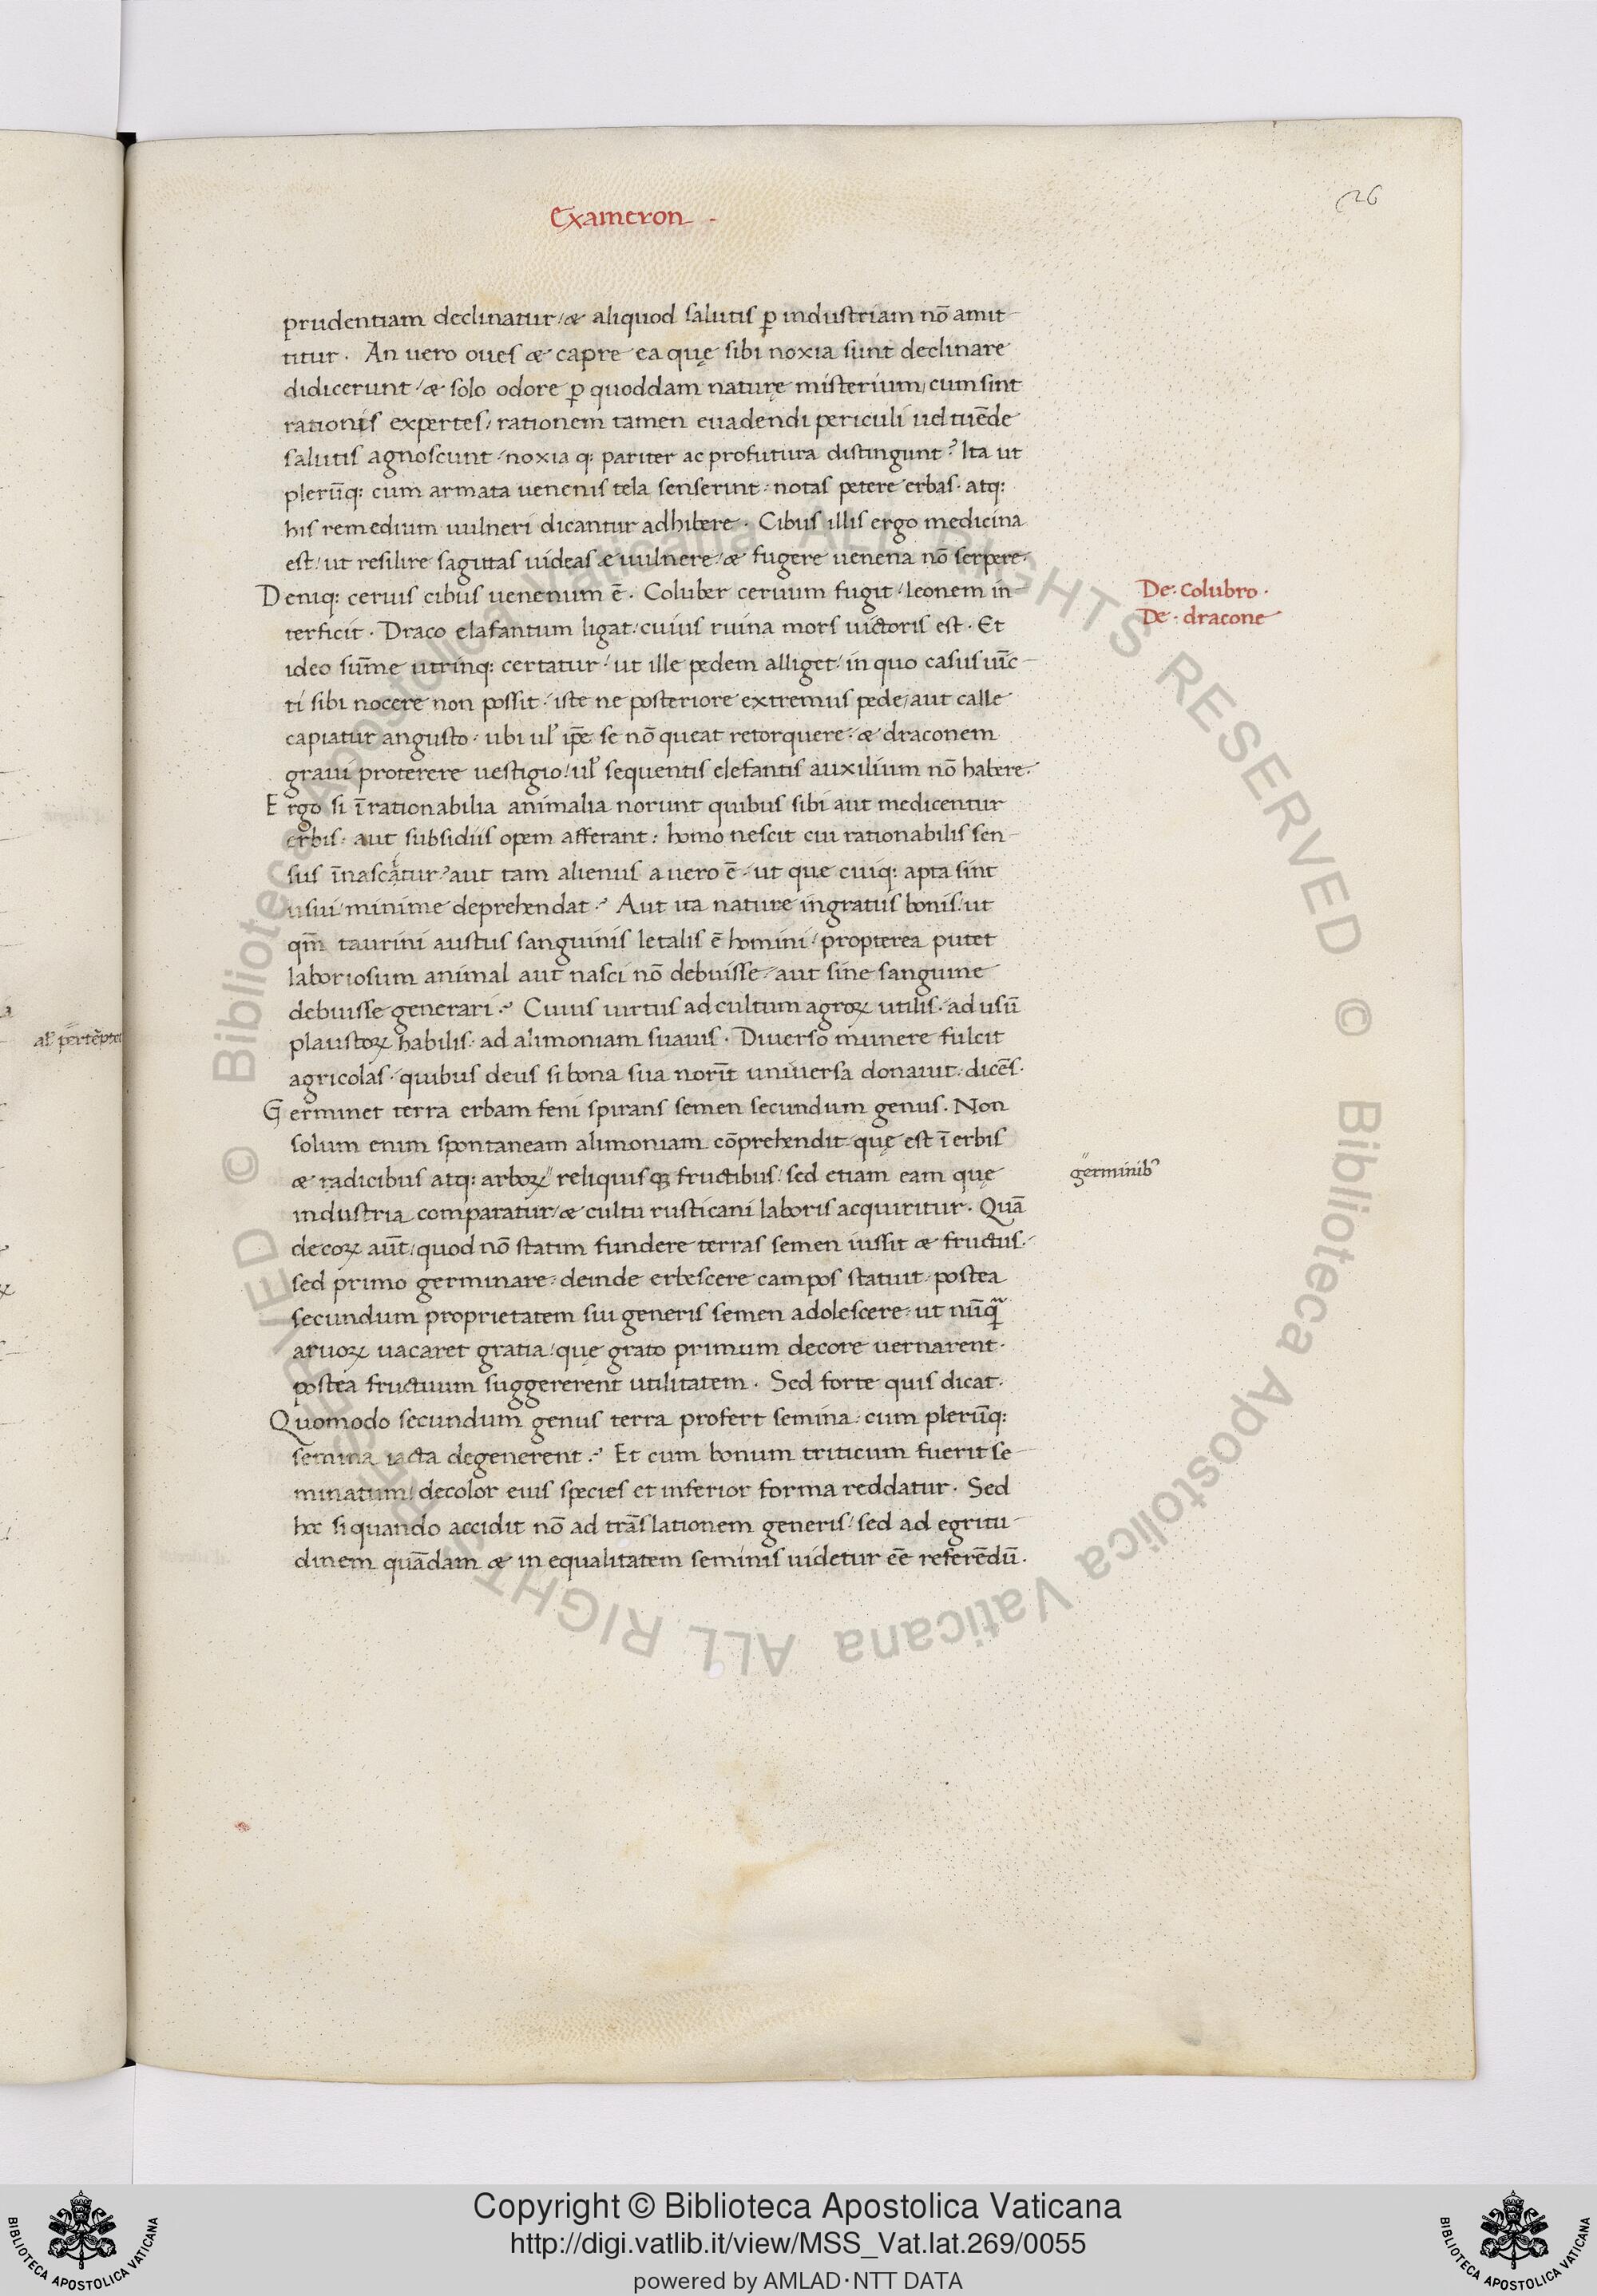 Exameron .
26
prudentiam declinatur / & aliquod salutis ꝑ industriam nō amit-
titur . An uero oues & capre ea quę sibi noxia sunt declinare
didicerunt / & solo odore ꝑ quoddam naturę misterium / cum sint
rationis expertes / rationem tamen euadendi periculi uel tuēde
salutis agnoscunt / noxia q: pariter ac profutura distingunt ? Ita ut
plerūq: cum armata uenenis tela senserint · notas petere erbas · atq:
his remedium uulneri dicantur adhibere . Cibus illis ergo medicina
est / ut resilire sagittas uideas & uulnere / & fugere uenena nō serpere .
Deniq: ceruis cibus uenenum ē . Coluber ceruum fugit / leonem in-
terficit . Draco elafantum ligat / cuius ruina mors uictoris est . Et
ideo sūme utrinq: certatur / ut ille pedem alliget / in quo casus uīc-
ti sibi nocere non possit · iste ne posteriore extremus pede / aut calle
capiatur angusto · ubi ul' ip̄e se nō queat retorquere / & draconem
graui proterere uestigio / ul' sequentis elefantis auxilium nō habere .
Ergo si īrationabilia animalia norunt quibus sibi aut medicentur
erbis · aut subsidiis opem afferant : homo nescit cui rationabilis sen-
sus īnascatur ? aut tam alienus a uero ē / ut que cuiq: apta sint
usui / minime deprehendat ? Aut ita nature ingratus bonis / ut
qm̄ taurini austus sanguinis letalis ē homini / propterea putet
laboriosum animal aut nasci nō debuisse / aut sine sanguine
debuisse generari ? Cuius uirtus ad cultum agroꝝ utilis · ad usū
plaustoꝝ habilis · ad alimoniam suauis . Diuerso munere fulcit
agricolas · quibus deus si bona sua norīt uniuersa donauit · dicēs .
Germinet terra erbam feni spirans semen secundum genus . Non
solum enim spontaneam alimoniam cōprehendit quę est ī erbis
& radicibus atq: arboꝝ" reliquisqꝫ fructibus / sed etiam eam quę
industria comparatur / & cultu rusticani laboris acquiritur . Quā
decoꝝ aūt / quod nō statim fundere terras semen iussit & fructus .
sed primo germinare · deinde erbescere campos statuit · postea
secundum proprietatem sui generis semen adolescere · ut nūqᷓ
aruoꝝ uacaret gratia / quę grato primum decore uernarent ·
postea fructuum suggererent utilitatem . Sed forte quis dicat .
Quomodo secundum genus terra profert semina · cum plerūq:
semina iacta degenerent ? Et cum bonum triticum fuerit se-
minatum / decolor eius species et inferior forma reddatur . Sed
hoc si quando accidit nō ad trāslationem generis / sed ad egritu-
dinem quādam & in equalitatem seminis uidetur eē referēdū .
De · Colubro ·
De · dracone
"germinib'
Copyright © Biblioteca Apostolica Vaticana
http://digi.vatlib.it/view/MSS_Vat.lat.269/0055
powered by AMLAD·NTT DATA
BIBLIOTECA APOSTOLICA VATICANA
BIBLIOTECA APOSTOLICA VATICANA
© Biblioteca Apostolica Vaticana ALL RIGHTS RESERVED © Biblioteca Apostolica Vaticana ALL RIGHTS RESERVED